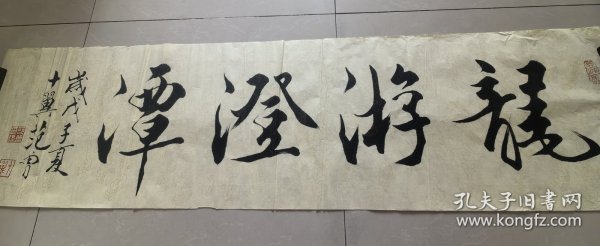 龍游澄潭
歲戊子夏
十翼范曾
孔夫子旧书网
www.kongfz.com